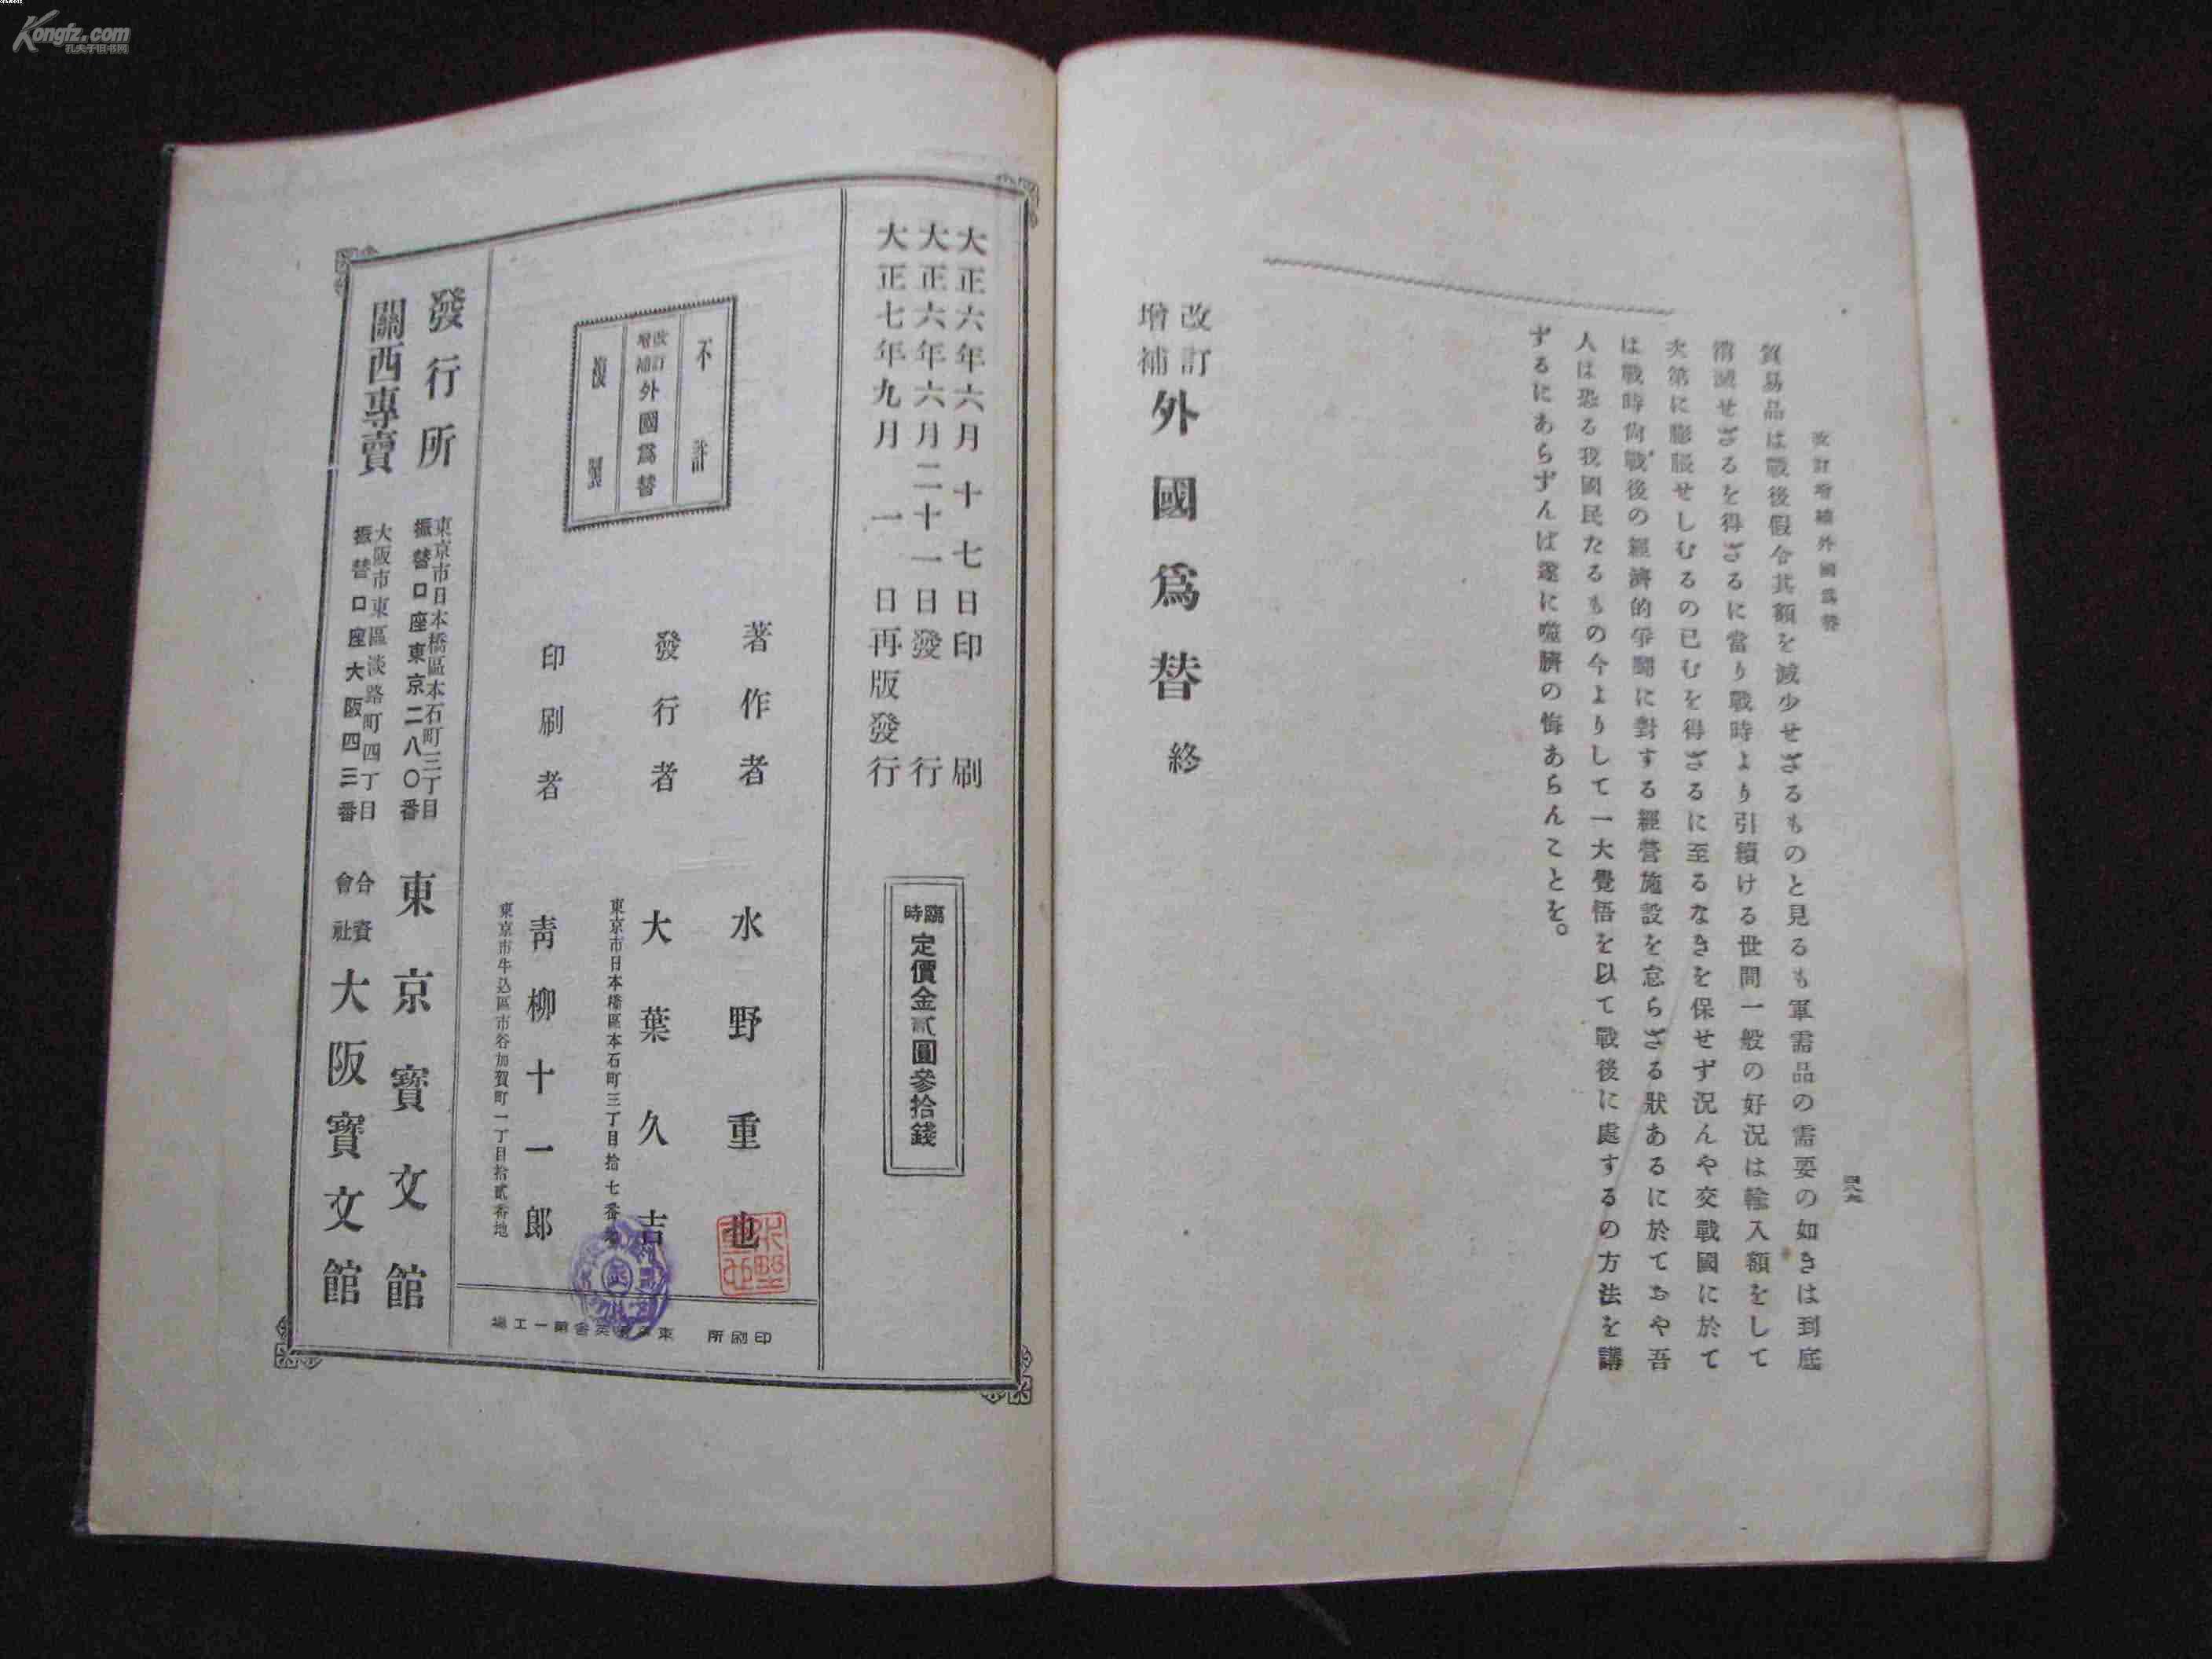 Kongfz.com
孔夫子旧书网
改訂增補外國爲替
四八六
貿易品は戰後假令其額を減少せざるものと見るも軍需品の需要の如きは到底
消滅せざるを得ざるに當り戰時より引續ける世間一般の好況は輸入額をして
次第に膨脹せしむるの已むを得ざるに至るなきを保せず況んや交戰國に於て
は戰時尙戰後の經濟的爭鬪に對する經營施設を怠らざる狀あるに於ておや吾
人は恐る我國民たるもの今よりして一大覺悟を以て戰後に處するの方法を講
ずるにあらずんば遂に噬臍の悔あらんことを。
改訂增補外國爲替 終
大正六年六月十七日印刷
大正六年六月二十一日發行
大正七年九月一日再版發行
臨時定價金貳圓參拾錢
不許
改訂增補外國爲替
複製
著作者 水野重也
發行者 大葉久吉
東京市日本橋區本石町三丁目拾七番地
印刷者 靑柳十一郎
東京市牛込區市谷加賀町一丁目拾貳番地
印刷所 東京 英舍第一工場
發行所 東京市日本橋區本石町三丁目 東京寶文館
振替口座東京二八〇番
關西專賣 大阪市東區淡路町四丁目 合資會社大阪寶文館
振替口座大阪四三番
水野重也